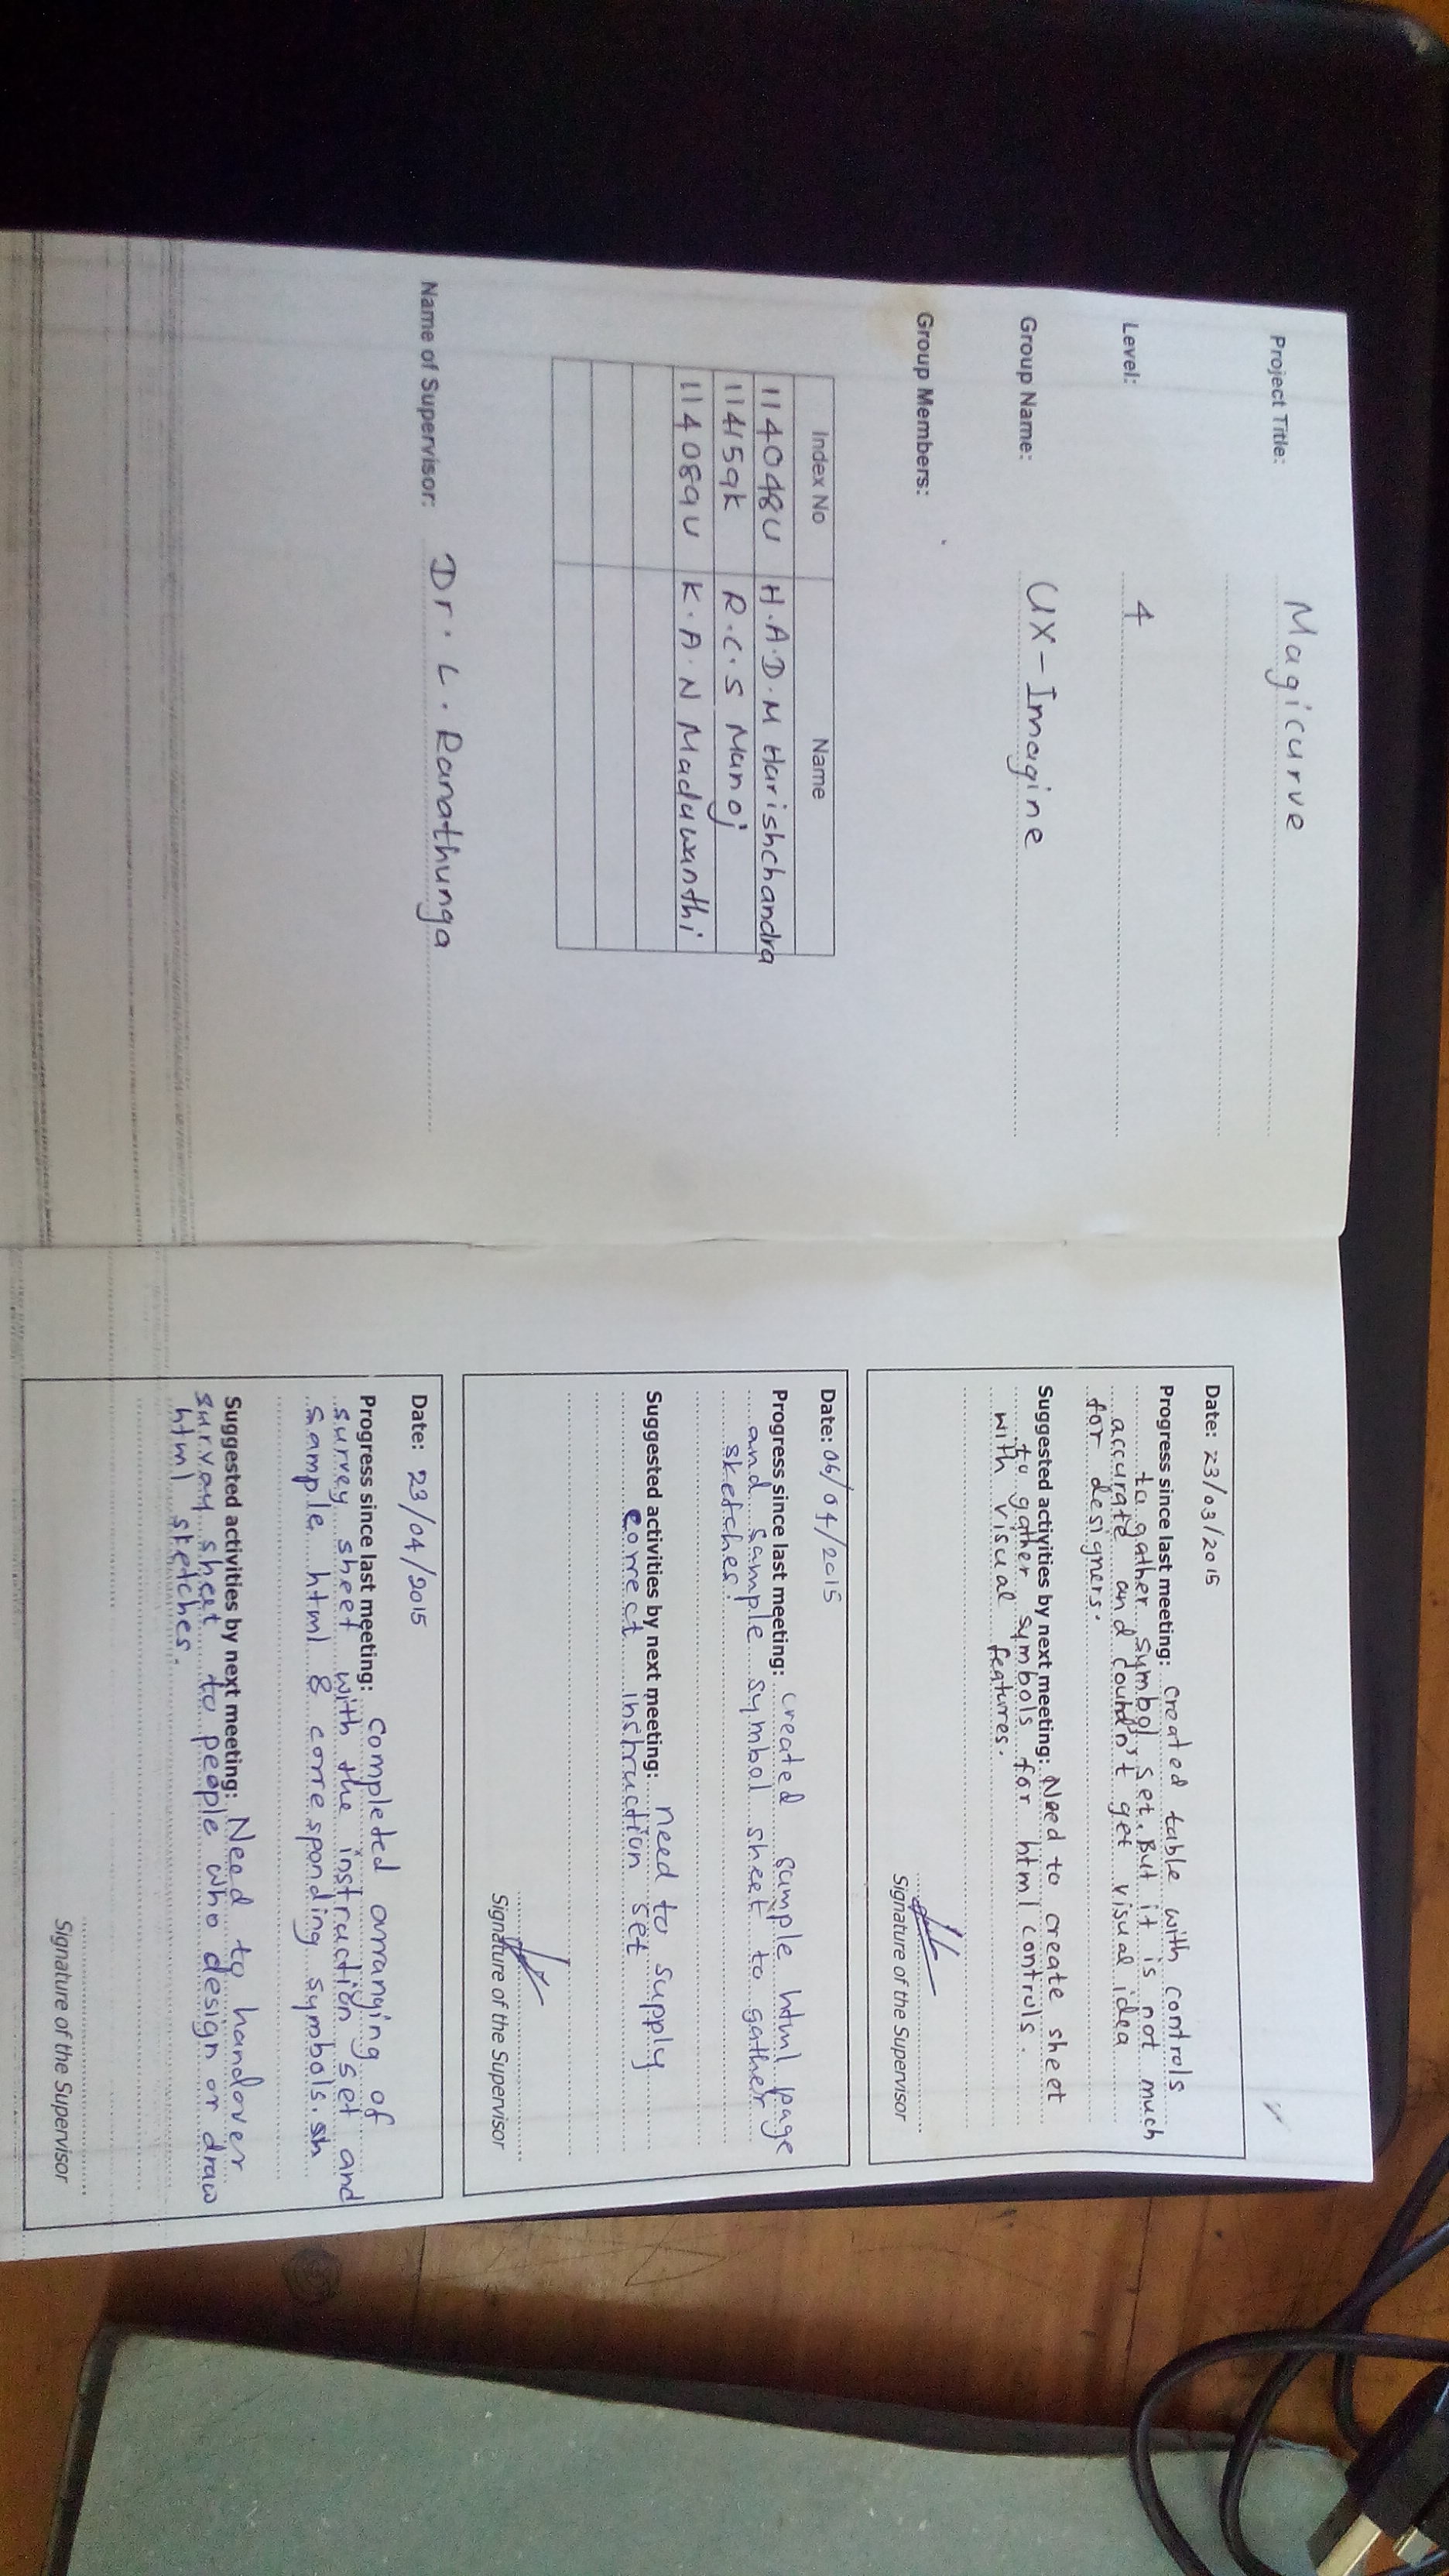 Project Title: Magicurve
Level: 4
Group Name: UX-Imagine
Group Members:
Index No Name
114048U H.A.D.M Harishchandra
114159K R.C.S Manoj
114089U K.A.N Maduwanthi
Name of Supervisor: Dr. L. Ranathunga
Date: 23/03/2015
Progress since last meeting: created table with controls
to gather symbol set. But it is not much
accurate and coudn't get visual idea
for designers.
Suggested activities by next meeting: Need to create sheet
to gather symbols for html controls.
with visual features.
Signature of the Supervisor
Date: 06/04/2015
Progress since last meeting: created sample html page
and sample symbol sheet to gather
sketches.
Suggested activities by next meeting: need to supply
correct instruction set
Signature of the Supervisor
Date: 23/04/2015
Progress since last meeting: completed arranging of
survey sheet with the instruction set and
sample html & corresponding symbols. sh
Suggested activities by next meeting: Need to handover
survay sheet to people who design or draw
html sketches.
Signature of the Supervisor